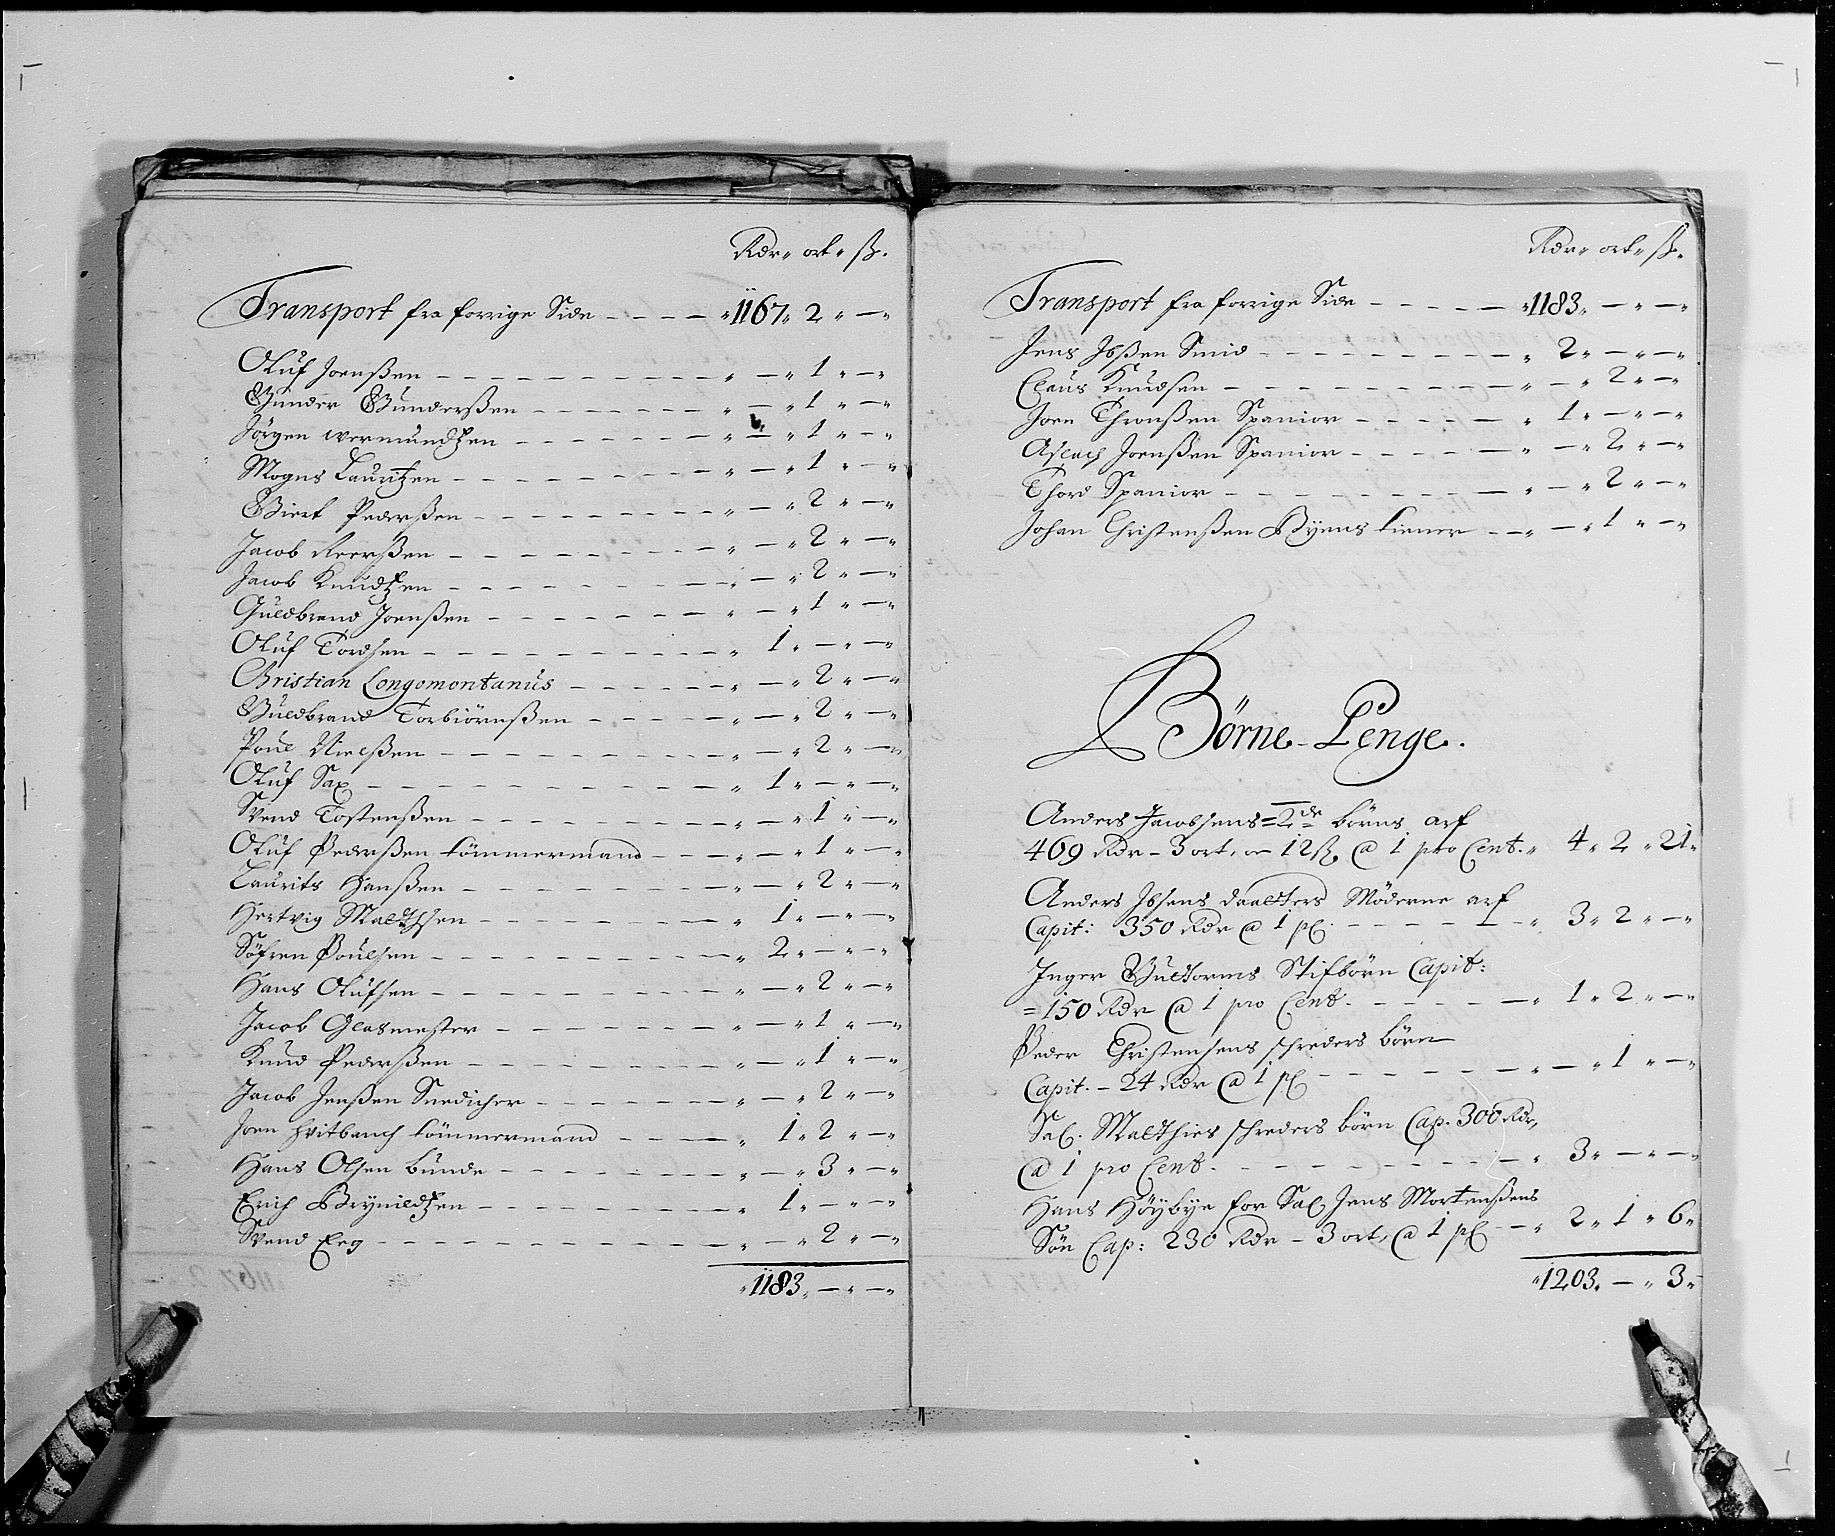 Rdr. ort. ß.
Transport fra forrige Side — 1167. 2. —
Oluf Joenßen — — 1. —
Gunder Gunderßen — — 1. —
Jörgen wermundtzen — — 1. —
Mogns Lauritzen — — 1. —
Giert Pederßen — — 2. —
Jacob Reerßen — — 2. —
Jacob Knudtzen — — 2. —
Guldbrand Joenßen — — 1. —
Oluf Tordsen — 1. — —
Christian Longomontanus — — 2. —
Guldbrand Torbiörnßen — — 2. —
Poul Nielßen — — 2. —
Oluf Sax — 1. — —
Svend Tostenßen — — 1. —
Oluf Pederßen tömmermand — — 1. —
Laurits Hanßen — — 2. —
Hertvig Malthsen — 1. — —
Söfren Poulsen — 2. — —
Hans Olufsen — — 2. —
Jacob Glasmester — — 1. —
Knud Pederßen — — 1. —
Jacob Jenßen Snedicher — — 2. —
Joen Hvitbanch tömmermand — 1. 2. —
Hans Olsen Bunde — — 3. —
Erich Brynildtzen — 1. — —
Svend Eeg — — 2. —
1183. — —
Rdr. ort. ß.
Transport fra forrige Side — 1183. — —
Jens Ibßen Smid — 2. — —
Claus Knudsen — — 2. —
Joen Thronßen Spanior — 1. — —
Aslach Joenßen Spanior — — 2. —
Thord Spanior — — 2. —
Johan Christenßen Byens tiener — — 1. —
Börne-Penge.
Anders Jacobsens = 2de börns arf
469 Rdr - 3 ort, 12ß, @ 1 pro Cent. 4. 2. 21.
Anders Ibsens daatters Möderne arf
Capit: 350 Rdr @ 1 pC. — 3. 2. —
Inger Guttorms Stifbörn Capit:
= 150 Rdr @ 1 pro Cent. — 1. 2. —
Peder Christensens schreders börn
Capit. - 24 Rdr @ 1 pC — — 1. —
Sal. Malthies schreders börn Cap. 300 Rdr,
@ 1 pro Cent. — 3. — —
Hans Höybye for Sal Jens Mortenßens
Sön Cap: 230 Rdr - 3 ort, @ 1 pC — 2. 1. 6.
1203. — 3.